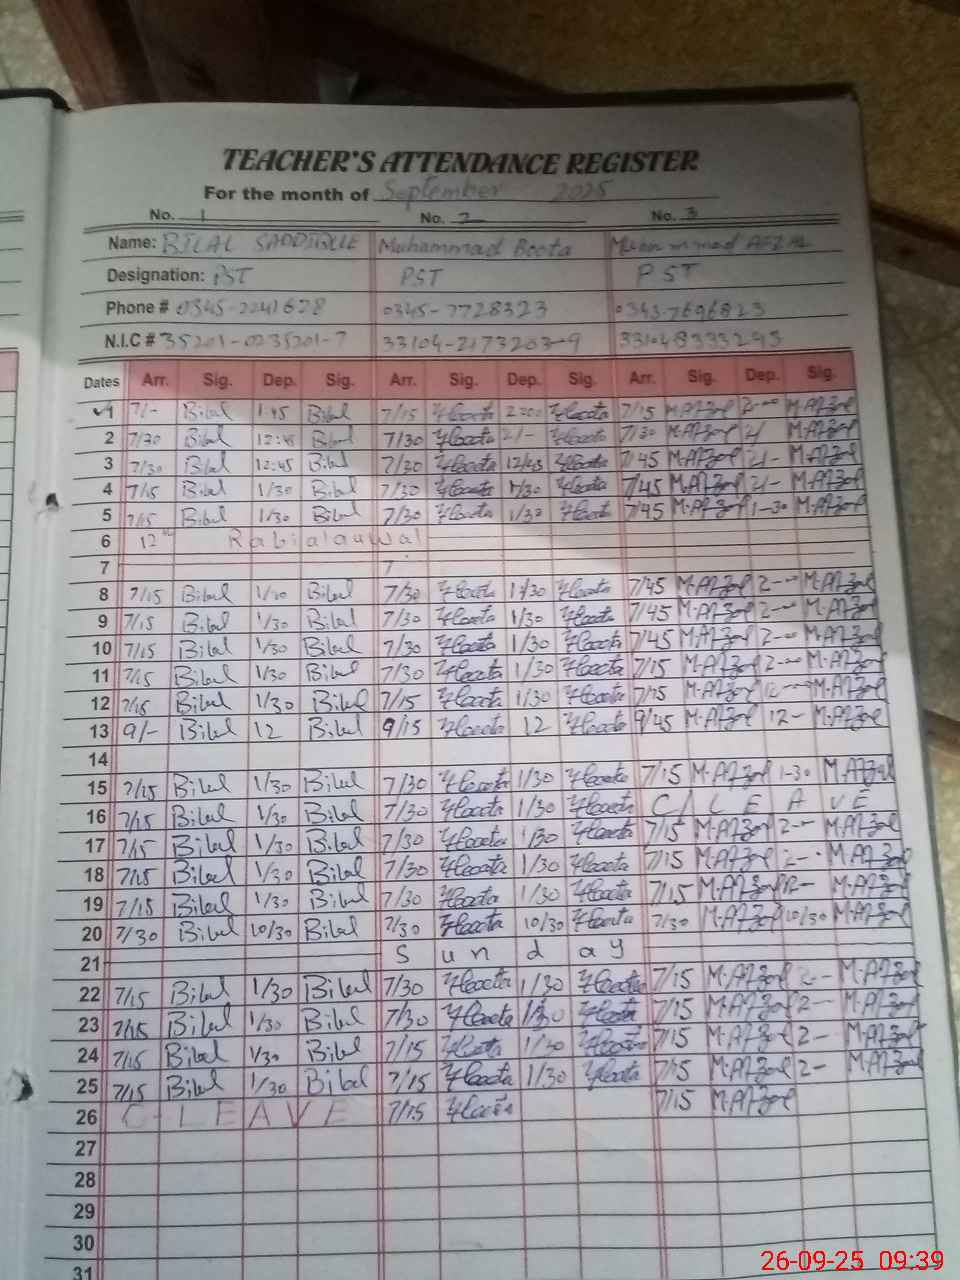 TEACHER'S ATTENDANCE REGISTER
For the month of September 2025
No. 1 No. 2 No. 3
Name: BILAL SADDIQUE Muhammad Boota Muhammad AFZAL
Designation: PST PST PST
Phone # 0345-2241628 0345-7728323 0343-7696823
N.I.C # 35201-0235201-7 33104-2173203-9 3310483332295
Dates Arr. Sig. Dep. Sig. Arr. Sig. Dep. Sig. Arr. Sig. Dep. Sig.
1 7/- Bilal 1:45 Bilal 7/15 Boota 2:00 Boota 7/15 M.AFZal 2-00 M.AFZal
2 7/30 Bilal 12:45 Bilal 7/30 Boota 2/- Boota 7/30 M.AFZal 2/ M.AFZal
3 7/30 Bilal 12:45 Bilal 7/30 Boota 12/45 Boota 7/45 M.AFZal 2/- M.AFZal
4 7/15 Bilal 1/30 Bilal 7/30 Boota 1/30 Boota 7/45 M.AFZal 2/- M.AFZal
5 7/15 Bilal 1/30 Bilal 7/30 Boota 1/30 Boota 7/45 M.AFZal 1-30 M.AFZal
6 12th Rabialauwal
7
8 7/15 Bilal 1/30 Bilal 7/30 Boota 1/30 Boota 7/45 M.AFZal 2-00 M.AFZal
9 7/15 Bilal 1/30 Bilal 7/30 Boota 1/30 Boota 7/45 M.AFZal 2-00 M.AFZal
10 7/15 Bilal 1/30 Bilal 7/30 Boota 1/30 Boota 7/45 M.AFZal 2-00 M.AFZal
11 7/15 Bilal 1/30 Bilal 7/30 Boota 1/30 Boota 7/15 M.AFZal 2-00 M.AFZal
12 7/15 Bilal 1/30 Bilal 7/15 Boota 1/30 Boota 7/15 M.AFZal 12-00 M.AFZal
13 9/- Bilal 12 Bilal 9/15 Boota 12 Boota 9/45 M.AFZal 12- M.AFZal
14
15 7/15 Bilal 1/30 Bilal 7/30 Boota 1/30 Boota 7/15 M.AFZal 1-30 M.AFZal
16 7/15 Bilal 1/30 Bilal 7/30 Boota 1/30 Boota C/LEAVE
17 7/15 Bilal 1/30 Bilal 7/30 Boota 1/30 Boota 7/15 M.AFZal 2-- M.AFZal
18 7/15 Bilal 1/30 Bilal 7/30 Boota 1/30 Boota 7/15 M.AFZal 2-- M.AFZal
19 7/15 Bilal 1/30 Bilal 7/30 Boota 1/30 Boota 7/15 M.AFZal 12- M.AFZal
20 7/30 Bilal 10/30 Bilal 7/30 Boota 10/30 Boota 7/30 M.AFZal 10/30 M.AFZal
21 Sunday
22 7/15 Bilal 1/30 Bilal 7/30 Boota 1/30 Boota 7/15 M.AFZal 2-- M.AFZal
23 7/15 Bilal 1/30 Bilal 7/30 Boota 1/30 Boota 7/15 M.AFZal 2-- M.AFZal
24 7/15 Bilal 1/30 Bilal 7/15 Boota 1/30 Boota 7/15 M.AFZal 2-- M.AFZal
25 7/15 Bilal 1/30 Bilal 7/15 Boota 1/30 Boota 7/15 M.AFZal 2- M.AFZal
26 C-LEAVE 7/15 Boota 7/15 M.AFZal
27
28
29
30
31
26-09-25 09:39